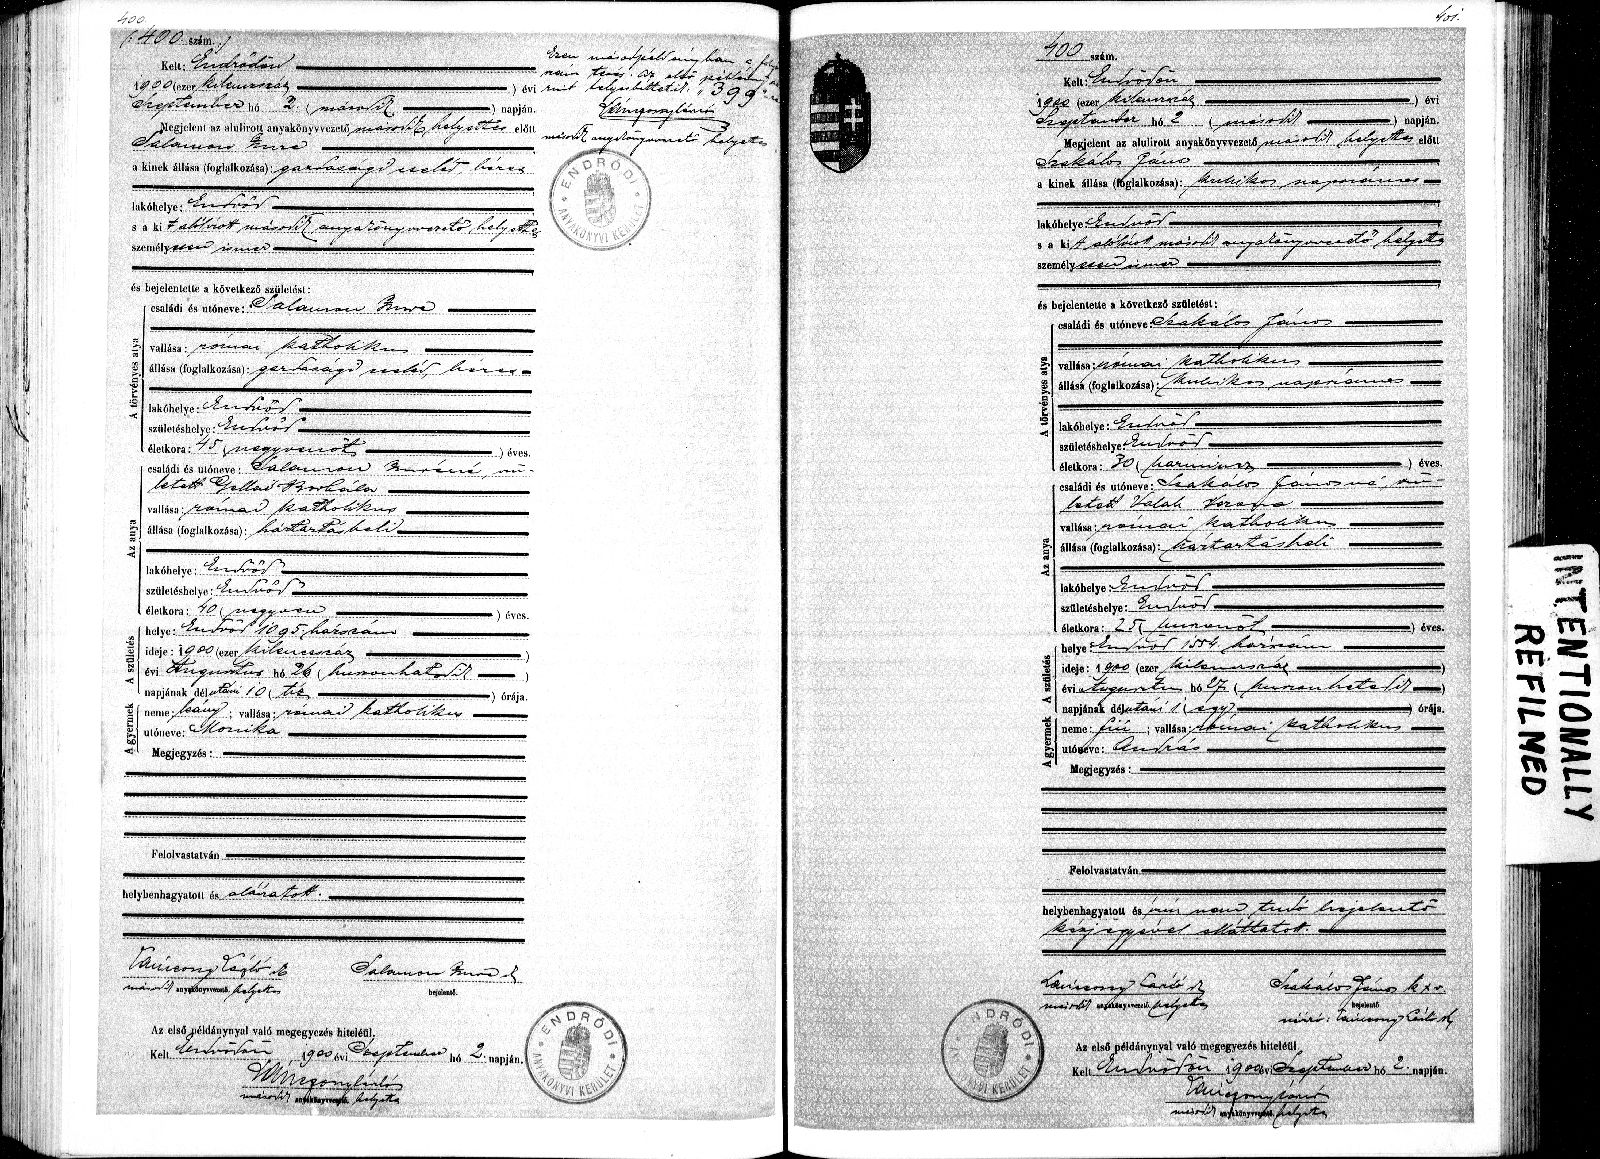 400
400 szám.
Kelt: Endrődön
1900 (ezer kilencszáz ) évi
Szeptember hó 2. (második ) napján.
Megjelent az alulirott anyakönyvvezető második helyettes előtt
Salamon Imre
a kinek állása (foglalkozása): gazdasági cseléd, béres
lakóhelye: Endrőd
s a kit alólirott második anyakönyvvezető helyettes
személyesen ismer
és bejelentette a következő születést:
A törvényes atya
családi és utóneve: Salamon Imre
vallása: római katholikus
állása (foglalkozása): gazdasági cseléd, béres
lakóhelye: Endrőd
születéshelye: Endrőd
életkora: 45 (negyvenöt ) éves.
Az anya
családi és utóneve: Salamon Imréné, szü-
letett Gellai Borbála
vallása: római katholikus
állása (foglalkozása): háztartásbeli
lakóhelye: Endrőd
születéshelye: Endrőd
életkora: 40 (negyven ) éves.
A születés
helye: Endrőd 1095 házszám
ideje: 1900 (ezer kilencszáz )
évi Augusztus hó 26 (huszonhatodik )
napjának délutáni 10 (tíz ) órája.
A gyermek
neme: leány; vallása: római katholikus
utóneve: Monika
Megjegyzés:
Felolvastatván
helybenhagyatott és aláiratott.
második anyakönyvvezető helyettes
Salamon Imre
bejelentő.
Az első példánynyal való megegyezés hiteléül.
Kelt Endrődön 1900 évi Szeptember hó 2. napján.
második anyakönyvvezető helyettes
Ezen másodpéldányban a folyó
399
második anyakönyvvezető helyettes
ENDRŐDI
ANYAKÖNYVI KERÜLET
ENDRŐDI
ANYAKÖNYVI KERÜLET
401.
400 szám.
Kelt: Endrődön
1900 (ezer kilencszáz ) évi
Szeptember hó 2 (második ) napján.
Megjelent az alulirott anyakönyvvezető második helyettes előtt
Szakálos János
a kinek állása (foglalkozása): kubikos napszámos
lakóhelye: Endrőd
s a kit alólirott második anyakönyvvezető helyettes
személyesen ismer
és bejelentette a következő születést:
A törvényes atya
családi és utóneve: Szakálos János
vallása: római katholikus
állása (foglalkozása): kubikos napszámos
lakóhelye: Endrőd
születéshelye: Endrőd
életkora: 30 (harmincz ) éves.
Az anya
családi és utóneve: Szakálos Jánosné, szü-
letett Valah
vallása: római katholikus
állása (foglalkozása): háztartásbeli
lakóhelye: Endrőd
születéshelye: Endrőd
életkora: 25 (huszonöt ) éves.
A születés
helye Endrőd 1554 házszám
ideje: 1900 (ezer kilencszáz )
évi Augusztus hó 27 (huszonhetedik )
napjának délutáni 1 (egy ) órája.
A gyermek
neme: fiú; vallása: római katholikus
utóneve: András
Megjegyzés:
Felolvastatván
helybenhagyatott és írni nem tudó bejelentő
kézjegyével elláttatott.
második anyakönyvvezető helyettes
Szakálos János k x v.
bejelentő
Az első példánynyal való megegyezés hiteléül.
Kelt Endrődön 1900 évi Szeptember hó 2. napján.
második anyakönyvvezető helyettes
INTENTIONALLY
REFILMED